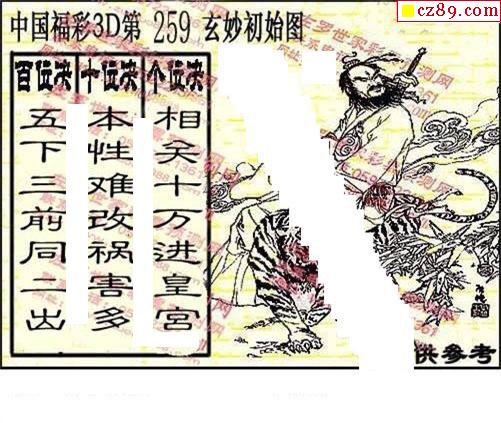 cz89.com
中国福彩3D第 259 玄妙初始图
百位决 十位决 个位决
五下三前同二出
本性难改祸害多
相关十万进皇宫
供参考